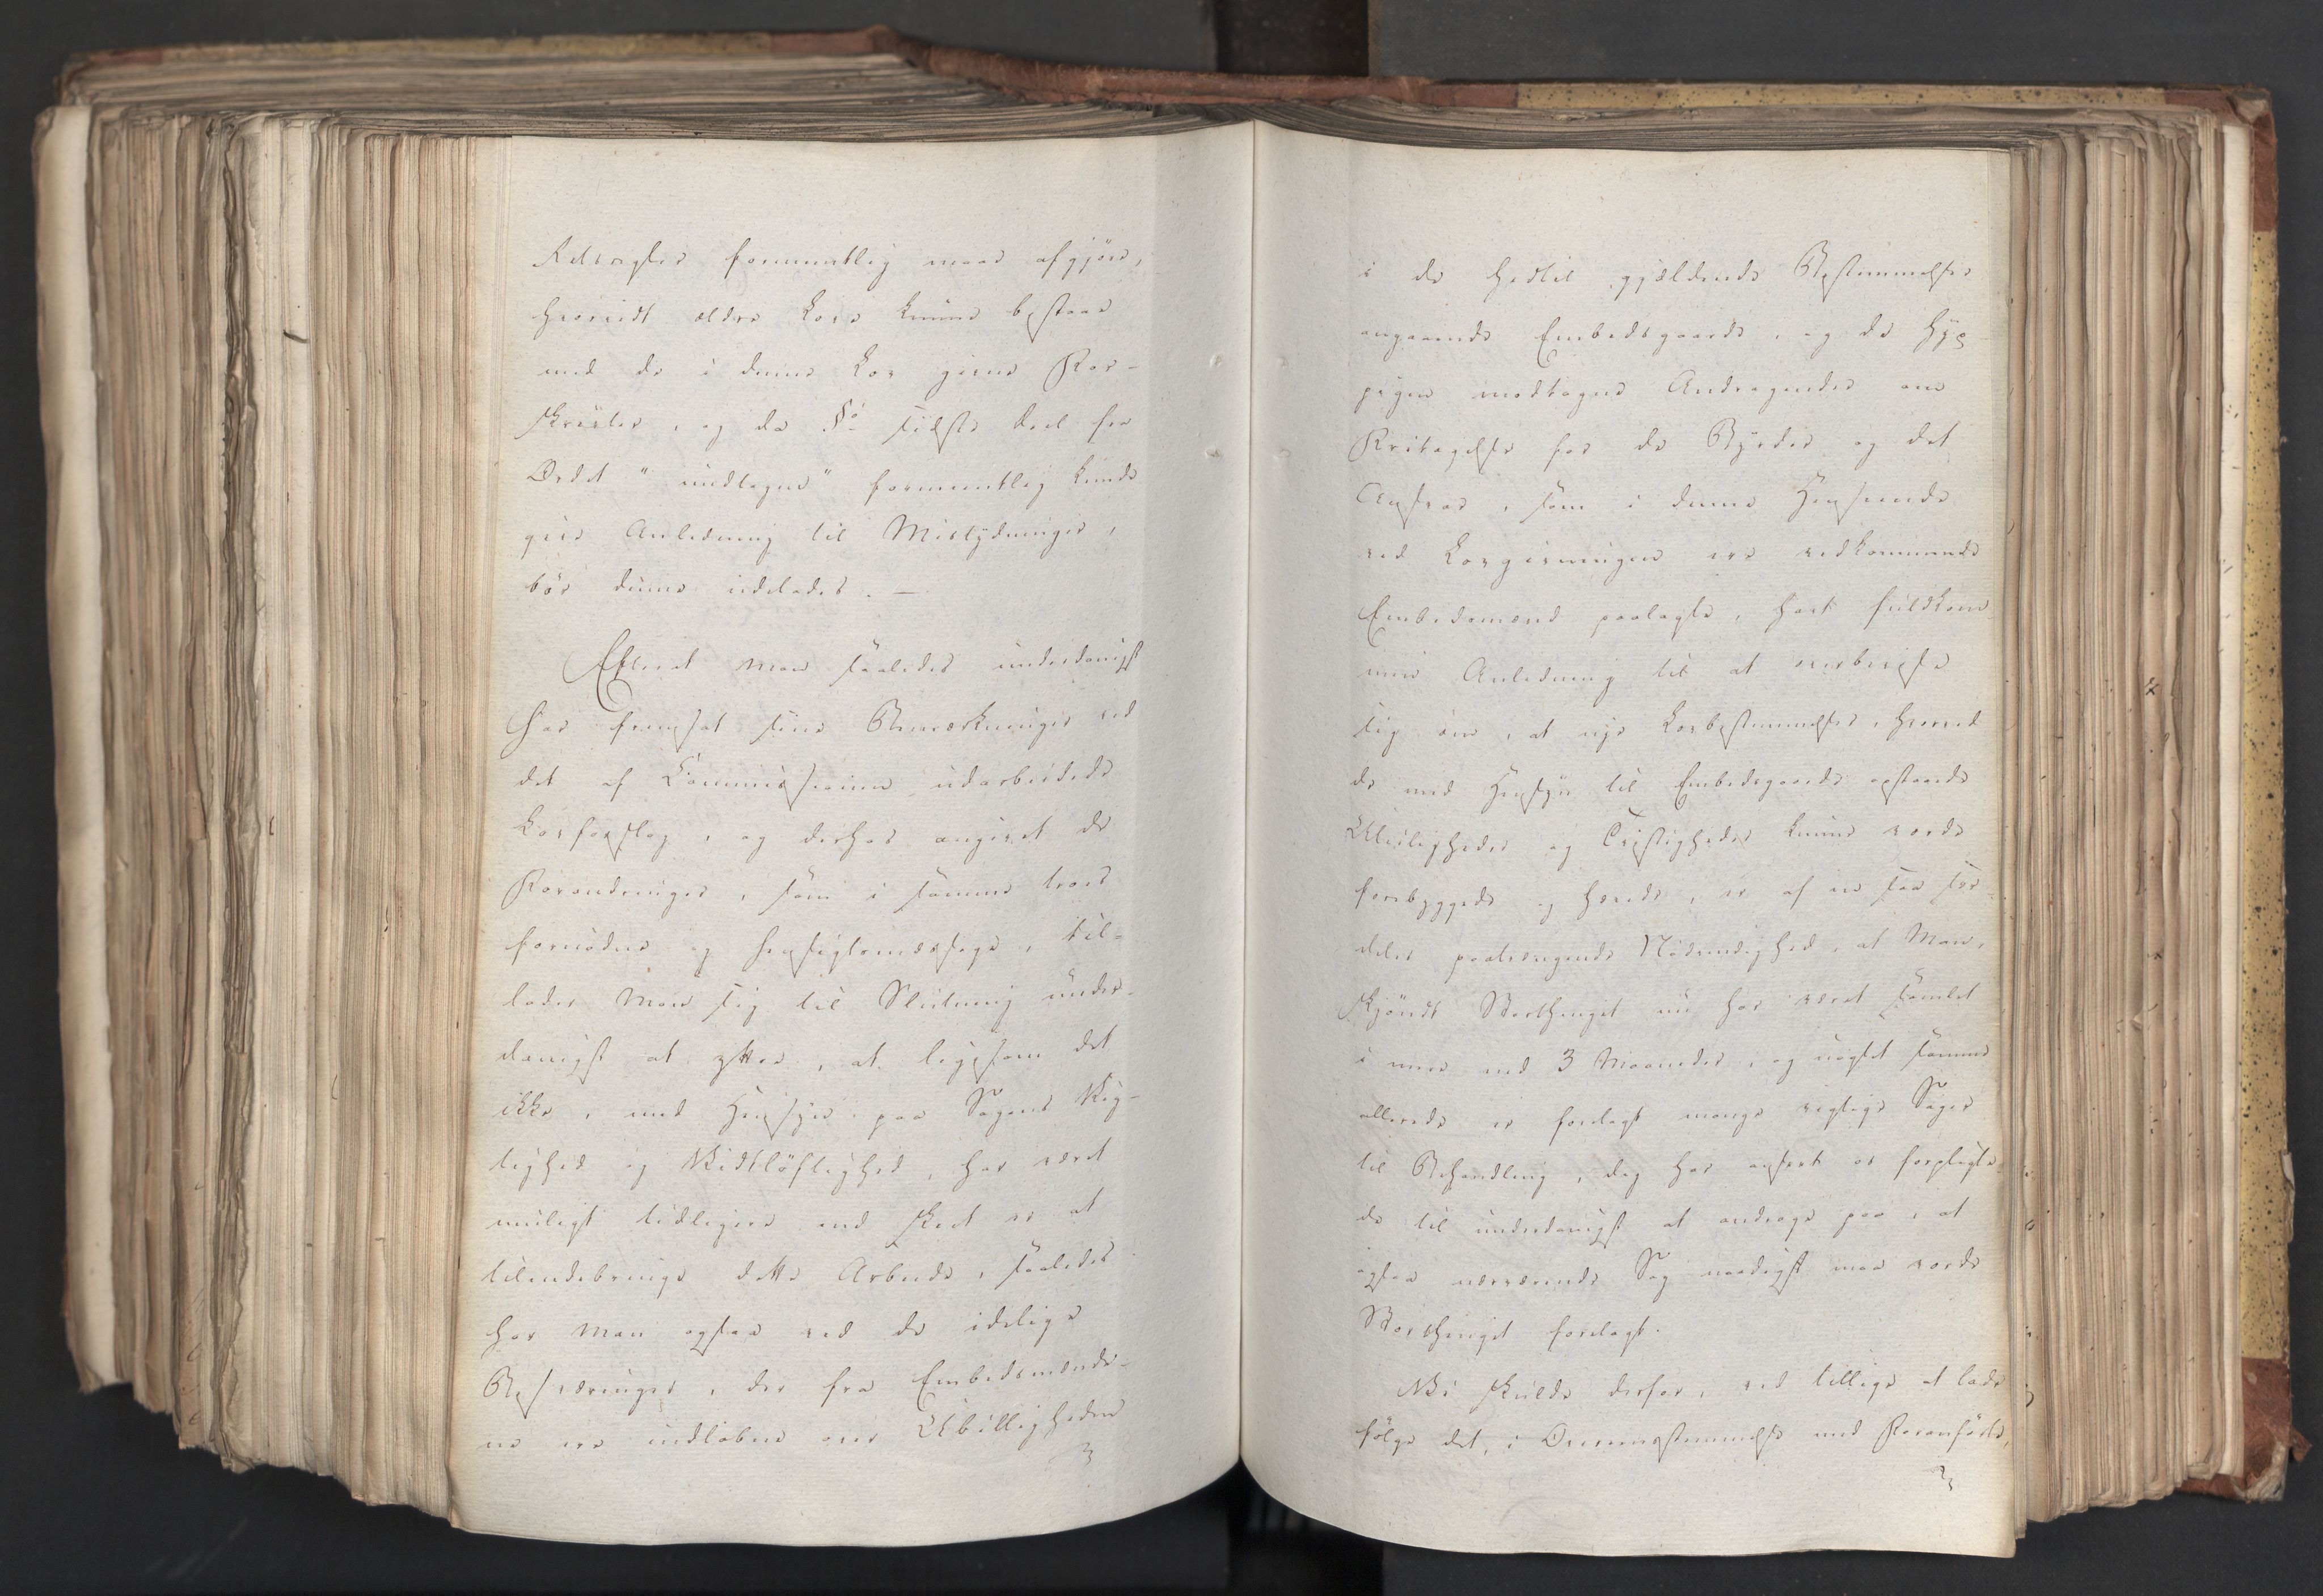 Retsregler formeentlig maae afgjøre,
hvorvidt ældre Love kunne bestaae
med de i denne Lov givne For-
skrifter, og da §ens sidste Deel fra
Ordet "undtagne" formeentlig kunde
give Anledning til Mistydninger,
bør denne udelades. —
Efterat man saaledes underdanigst
har fremsat sine Bemærkninger ved
det af Commissionen udarbeidede
Lovforslag, og derhos angivet de
Forandringer, som i samme troes
fornødne og hensigtsmæssige, til-
lader Man sig til Slutning under-
danigst at yttre, at ligesom det
ikke, med Hensyn paa Sagens Vig-
tighed og Vidtløftighed, har været
muligt tidligere end skeet er at
tilendebringe dette Arbeide, saaledes
har Man ogsaa ved de idelige
Besværinger, der fra Embedsmænde-
ne ere indløbne over Ubilligheden
i de hidtil gjældende Bestemmelser
angaaende Embedsgaarde, og de hyp
pigen modtagne Andragender om
Fritagelse for de Byrder og det
Ansvar, som i denne Henseende
ved Lovgivningen ere vedkommende
Embedsmænd paalagte, havt fuldkom
men Anledning til at overbevise
sig om, at nye Lovbestemmelser, hvorved
de med Hensyn til Embedsgaarde opstaaede
Uleiligheder og Tvistigheder kunne vorde
forebyggede og hævede, er af en saa sær-
deles paatrængende Nødvendighed, at Man,
skjøndt Storthinget nu har været samlet
i mere end 3 Maaneder, og uagtet samme
allerede er forelagt mange vigtige Sager
til Behandling, dog har anseet os forpligte
de til underdanigst at andrage paa, at
ogsaa nærværende Sag naadigst maa vorde
Storthinget forelagt.
Vi skulde derfor, ved tillige at lade
følge det, i Overeensstemmelse med Foranførte,